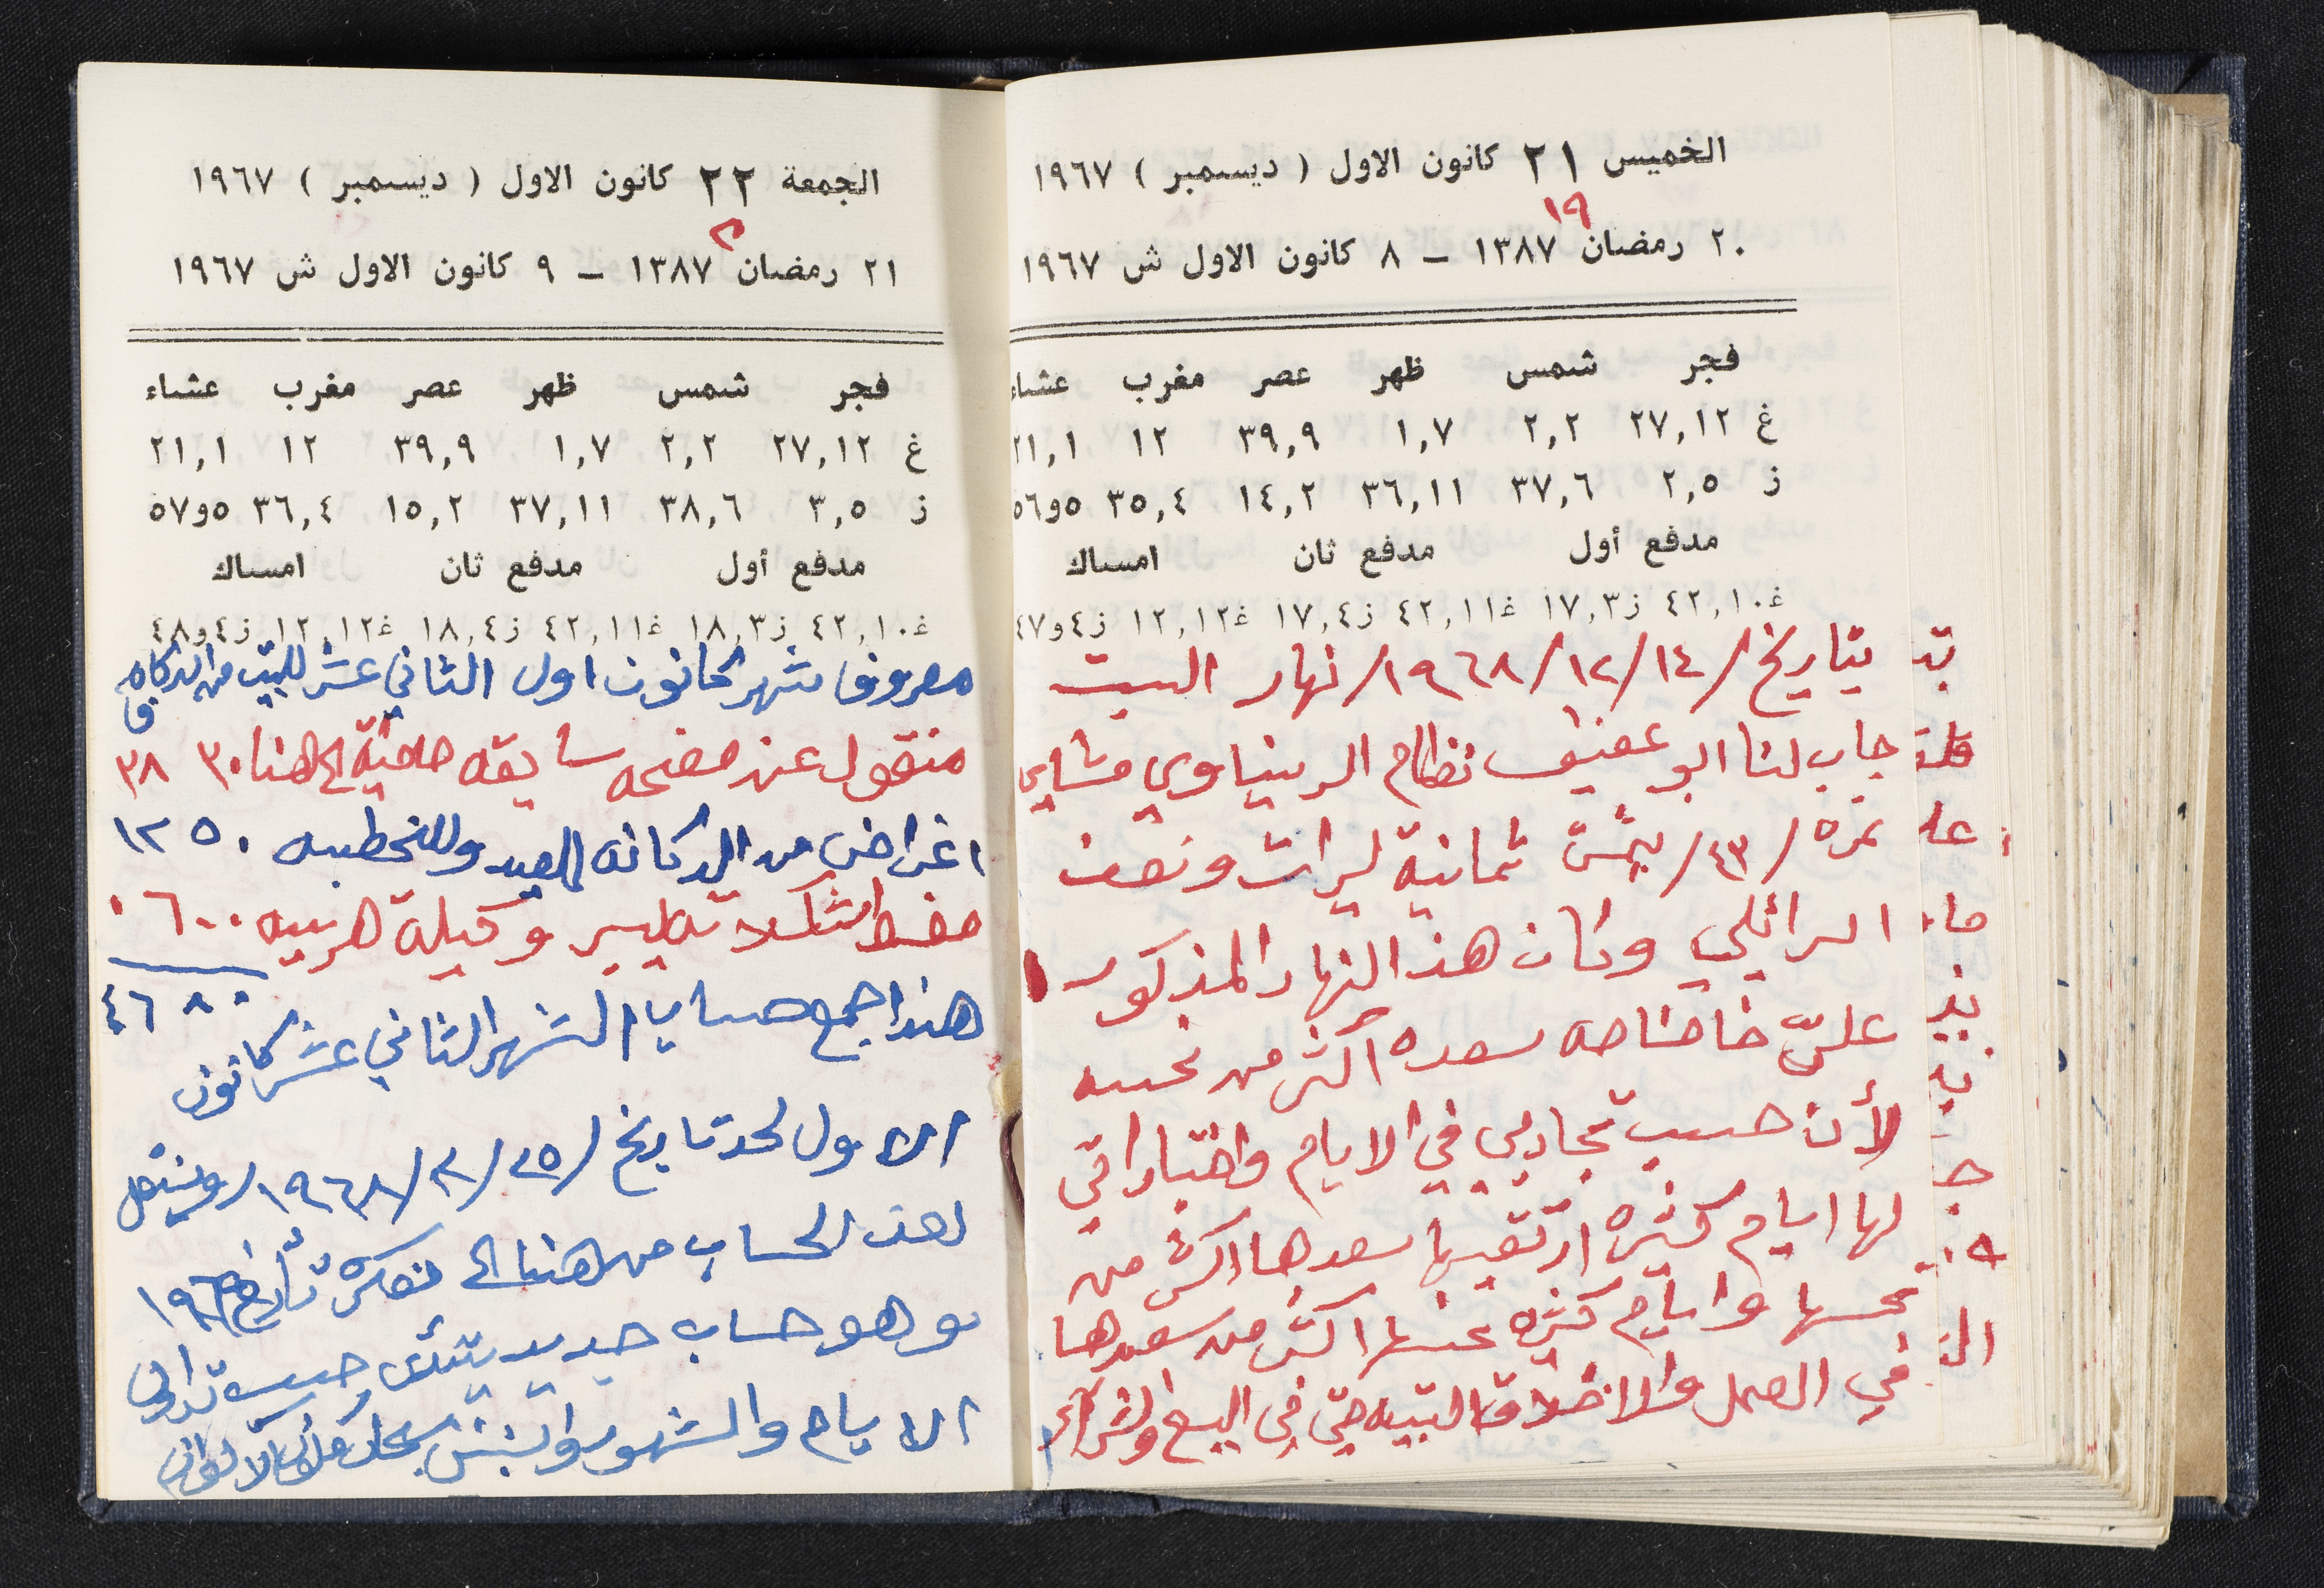 الخميس ٢١ كانون الاول ( ديسمبر ) ١٩٦٧
١٩
٢٠ رمضان ١٣٨٧ – ٨ كانون الاول ش ١٩٦٧
فجر شمس ظهر عصر مغرب عشاء
غ ٢٧,١٢ ٢,٢ ١,٧ ٣٩,٩ ١٢ ٢١,١
ز ٢,٥ ٣٧,٦ ٣٦,١١ ١٤,٢ ٣٥,٤ ٥و٥٦
مدفع أول مدفع ثان امساك
غ٤٢,١٠ ز١٧,٣ غ٤٢,١١ ز١٧,٤ غ١٢,١٢ ز٤و٤٧
بتاريخ /١٤/١٢/١٩٦٨/ نهار السبت
جاب لنا ابو عفيف نظام الديناوي مشايي
نمره /٤٣/ بثمن ثمانية ليرات ونصف
اسرائلي وكان هذا النهار المذكور
عليّ سعده اكثر من نحسه
لأن حسب تجاربي في الايام واختباراتي
لها ايام كثيره سعدها اكثر من
نحسها وايام كثيره نحسها اكثر من سعدها
في العمل والاخلاق البيتيه حتى في البيع والشراء
الجمعة ٢٢ كانون الاول ( ديسمبر ) ١٩٦٧
٢١ رمضان ١٣٨٧ – ٩ كانون الاول ش ١٩٦٧
فجر شمس ظهر عصر مغرب عشاء
غ ٢٧,١٢ ٢,٢ ١,٧ ٣٩,٩ ١٢ ٢١,١
ز ٣,٥ ٣٨,٦ ٣٧,١١ ١٥,٢ ٣٦,٤ ٥و٥٧
مدفع أول مدفع ثان امساك
غ٤٢,١٠ ز١٨,٣ غ٤٢,١١ ز١٨,٤ غ١٢,١٢ ز٤و٤٨
مصروف شهر كانون اول الثاني عشر للبيت من الدكان
منقول عن صفحه سابقه الى هنا ٣٨٣٠
اغراض من الدكانه للعيد وللخطبه ١٢٥٠
وكيلة هريسه ٠٦٠٠
٤٦٨٠
هندا جمع حساب الشهر الثاني عشر كانون
الاول لحد تاريخ /٢٥/٢/١٩٦٨/ وينتقل
لهذا الحساب من هنا الى مفكرة تاريخ
وهو حساب جديد يبتدئ حسب توالي
الايام والشهور والسنين